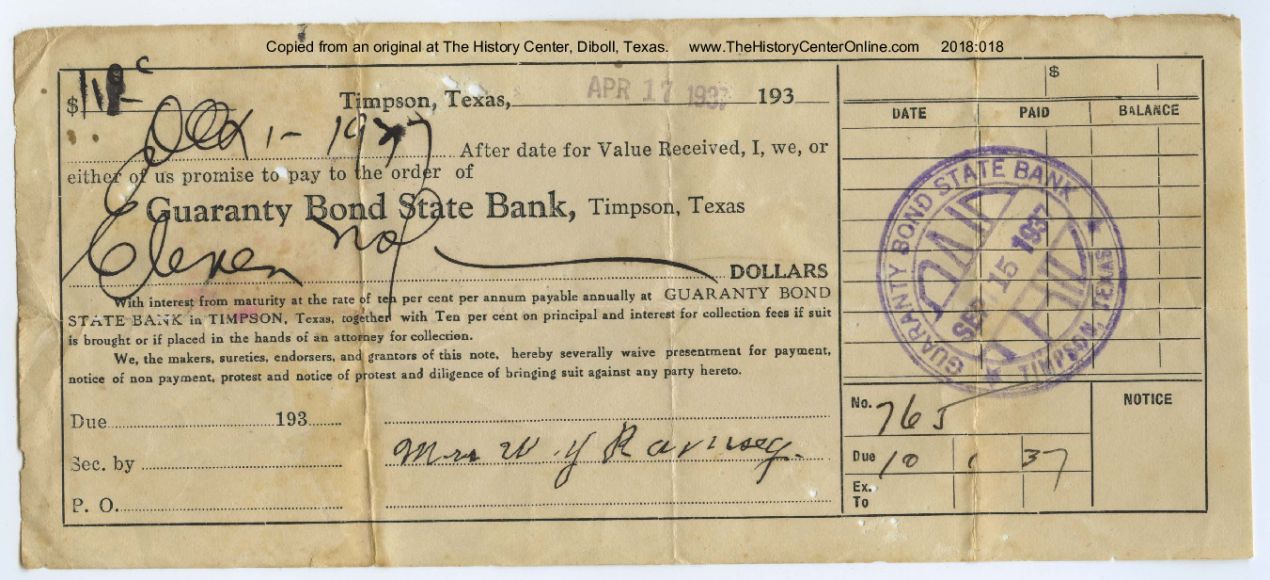 Copied from an original at The History Center, Diboll, Texas. www.TheHistoryCenterOnline.com 2018:018
$
Timpson, Texas, APR 17 1937 193
Oct 1 - 1937 After date for Value Received, I, we, or
either of us promise to pay to the order of
Guaranty Bond State Bank, Timpson, Texas
Eleven no/ DOLLARS
With interest from maturity at the rate of ten per cent per annum payable annually at GUARANTY BOND
STATE BANK in TIMPSON, Texas, together with Ten per cent on principal and interest for collection fees if suit
is brought or if placed in the hands of an attorney for collection.
We, the makers, sureties, endorsers, and grantors of this note, hereby severally waive presentment for payment,
notice of non payment, protest and notice of protest and diligence of bringing suit against any party hereto.
Due 193
Sec. by Mrs W. Y Ramsey.
P. O.
$
DATE PAID BALANCE
GUARANTY BOND STATE BANK
PAID
SEP 15 1937
TIMPSON, TEXAS
No. 765
NOTICE
Due 10 1 37
Ex.
To